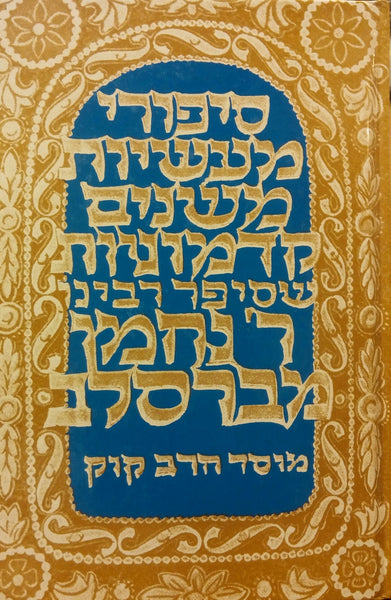 סיפורי
מעשיות
משנים
קדמוניות
שסיפר רבינו
ר' נחמן
מברסלב
מוסד הרב קוק